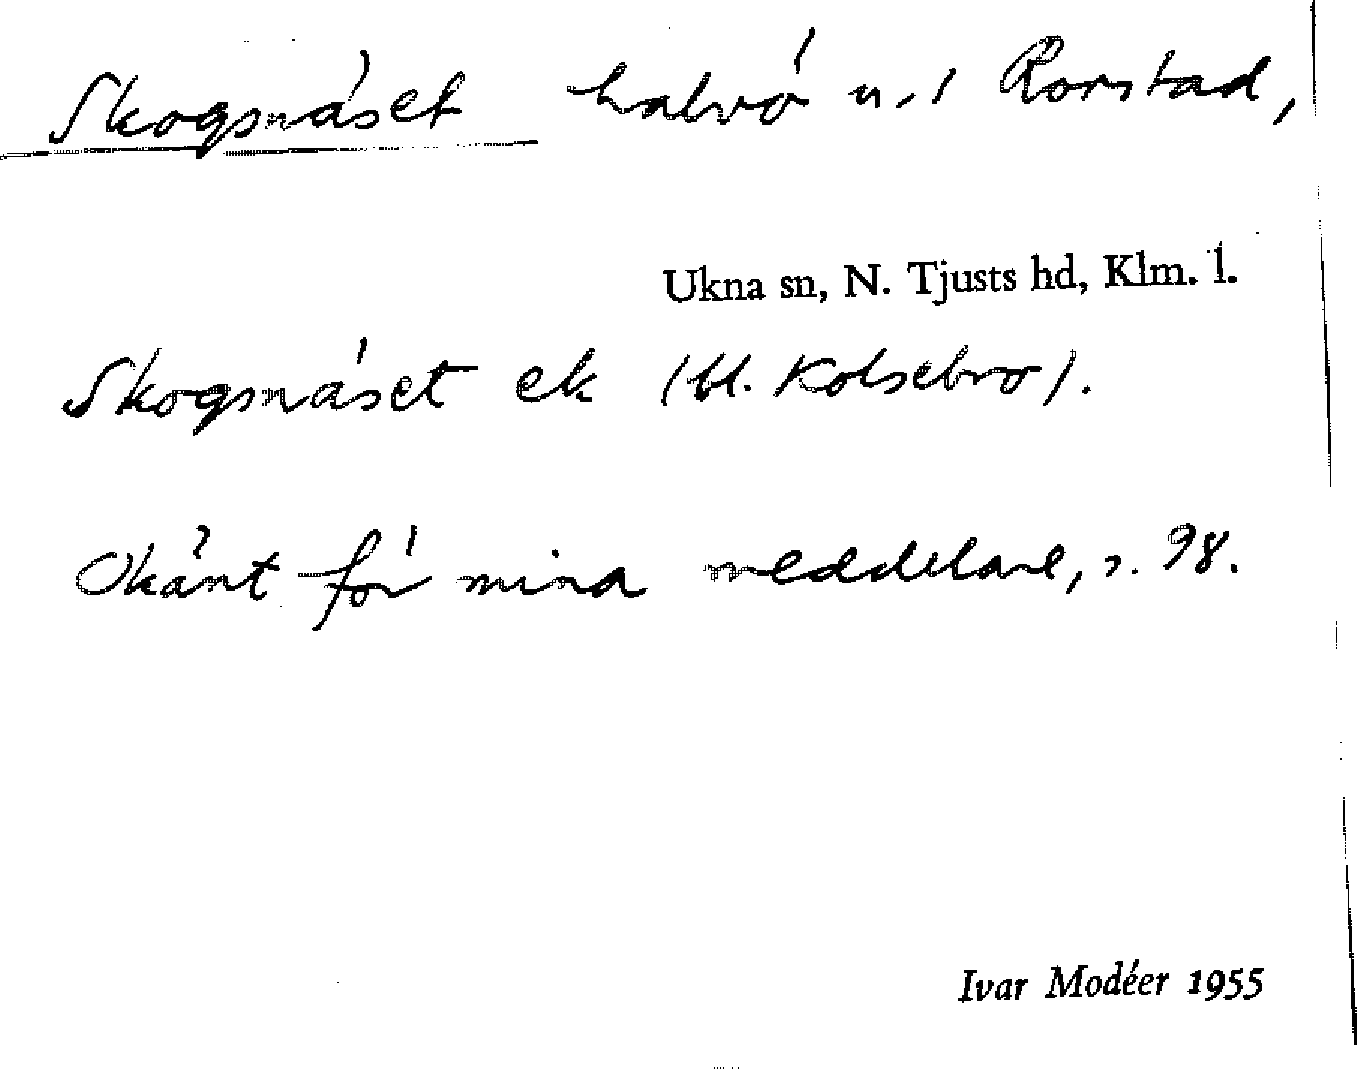 Skogsnäset halvö n. i Rorstad,
Ukna sn, N. Tjusts hd, Klm. l.
Skogsnäset ek (bl. Kolsebro).
Okänt för mina meddelare, s. 98.
Ivar Modéer 1955